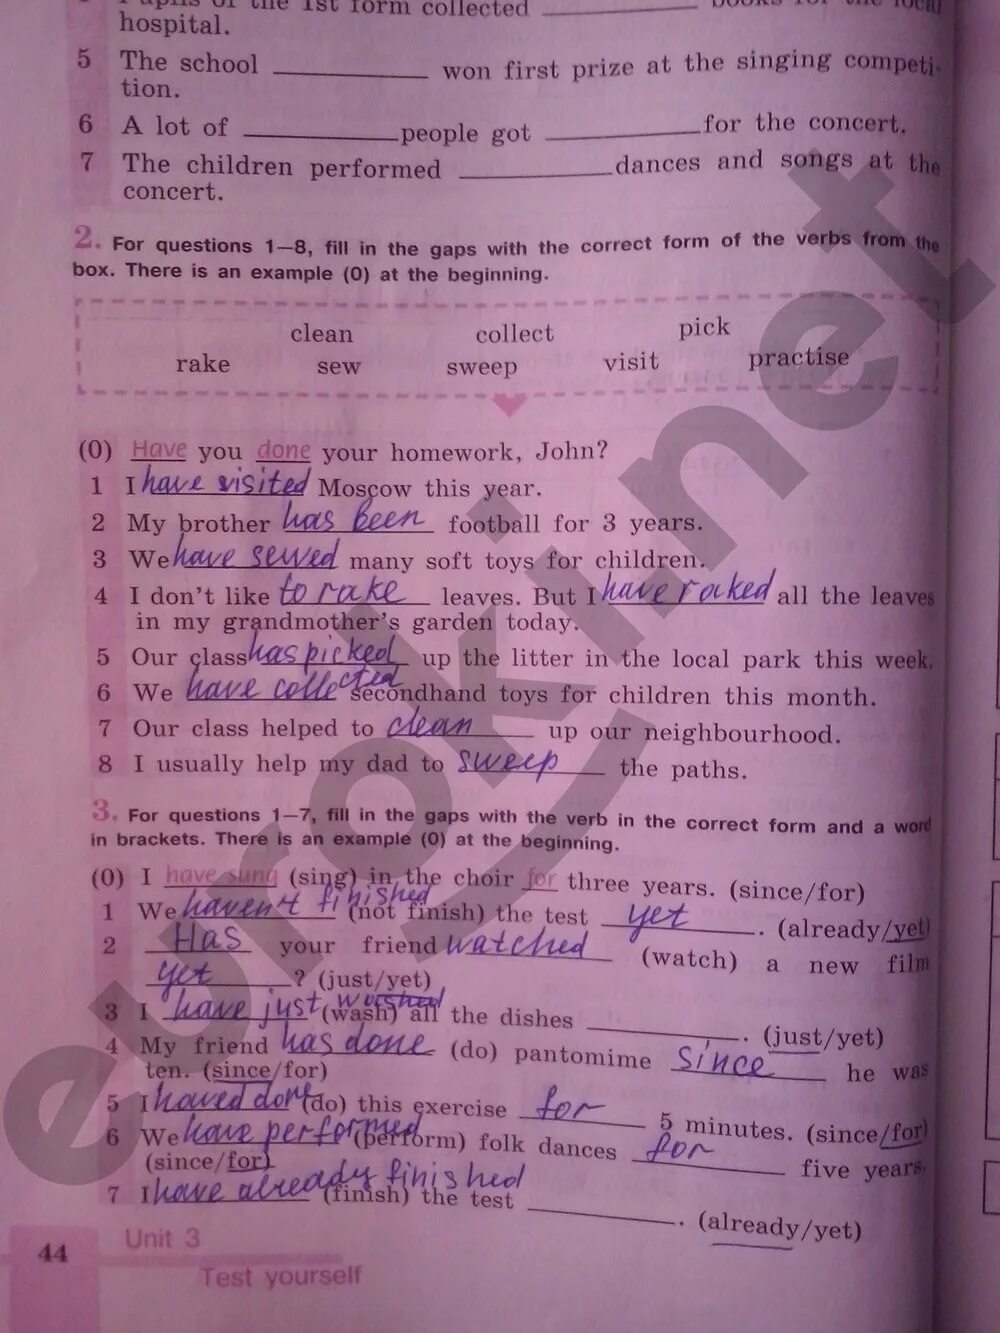 Pupils of the 1st form collected ____ books for the local
hospital.
5 The school ____ won first prize at the singing competi-
tion.
6 A lot of ____ people got ____ for the concert.
7 The children performed ____ dances and songs at the
concert.
2. For questions 1—8, fill in the gaps with the correct form of the verbs from the
box. There is an example (0) at the beginning.
clean collect pick
rake sew sweep visit practise
(0) Have you done your homework, John?
1 I have visited Moscow this year.
2 My brother has been football for 3 years.
3 We have sewed many soft toys for children.
4 I don't like to rake leaves. But I have raked all the leaves
in my grandmother's garden today.
5 Our class has picked up the litter in the local park this week.
6 We have collected secondhand toys for children this month.
7 Our class helped to clean up our neighbourhood.
8 I usually help my dad to sweep the paths.
3. For questions 1—7, fill in the gaps with the verb in the correct form and a word
in brackets. There is an example (0) at the beginning.
(0) I have sung (sing) in the choir for three years. (since/for)
1 We haven't finished (not finish) the test yet. (already/yet)
2 Has your friend watched (watch) a new film
yet? (just/yet)
3 I have just washed (wash) all the dishes ____. (just/yet)
4 My friend has done (do) pantomime since he was
ten. (since/for)
5 I haved done (do) this exercise for 5 minutes. (since/for)
6 We have performed (perform) folk dances for five years.
(since/for)
7 I have already finished (finish) the test ____. (already/yet)
44 Unit 3
Test yourself
eurokinet